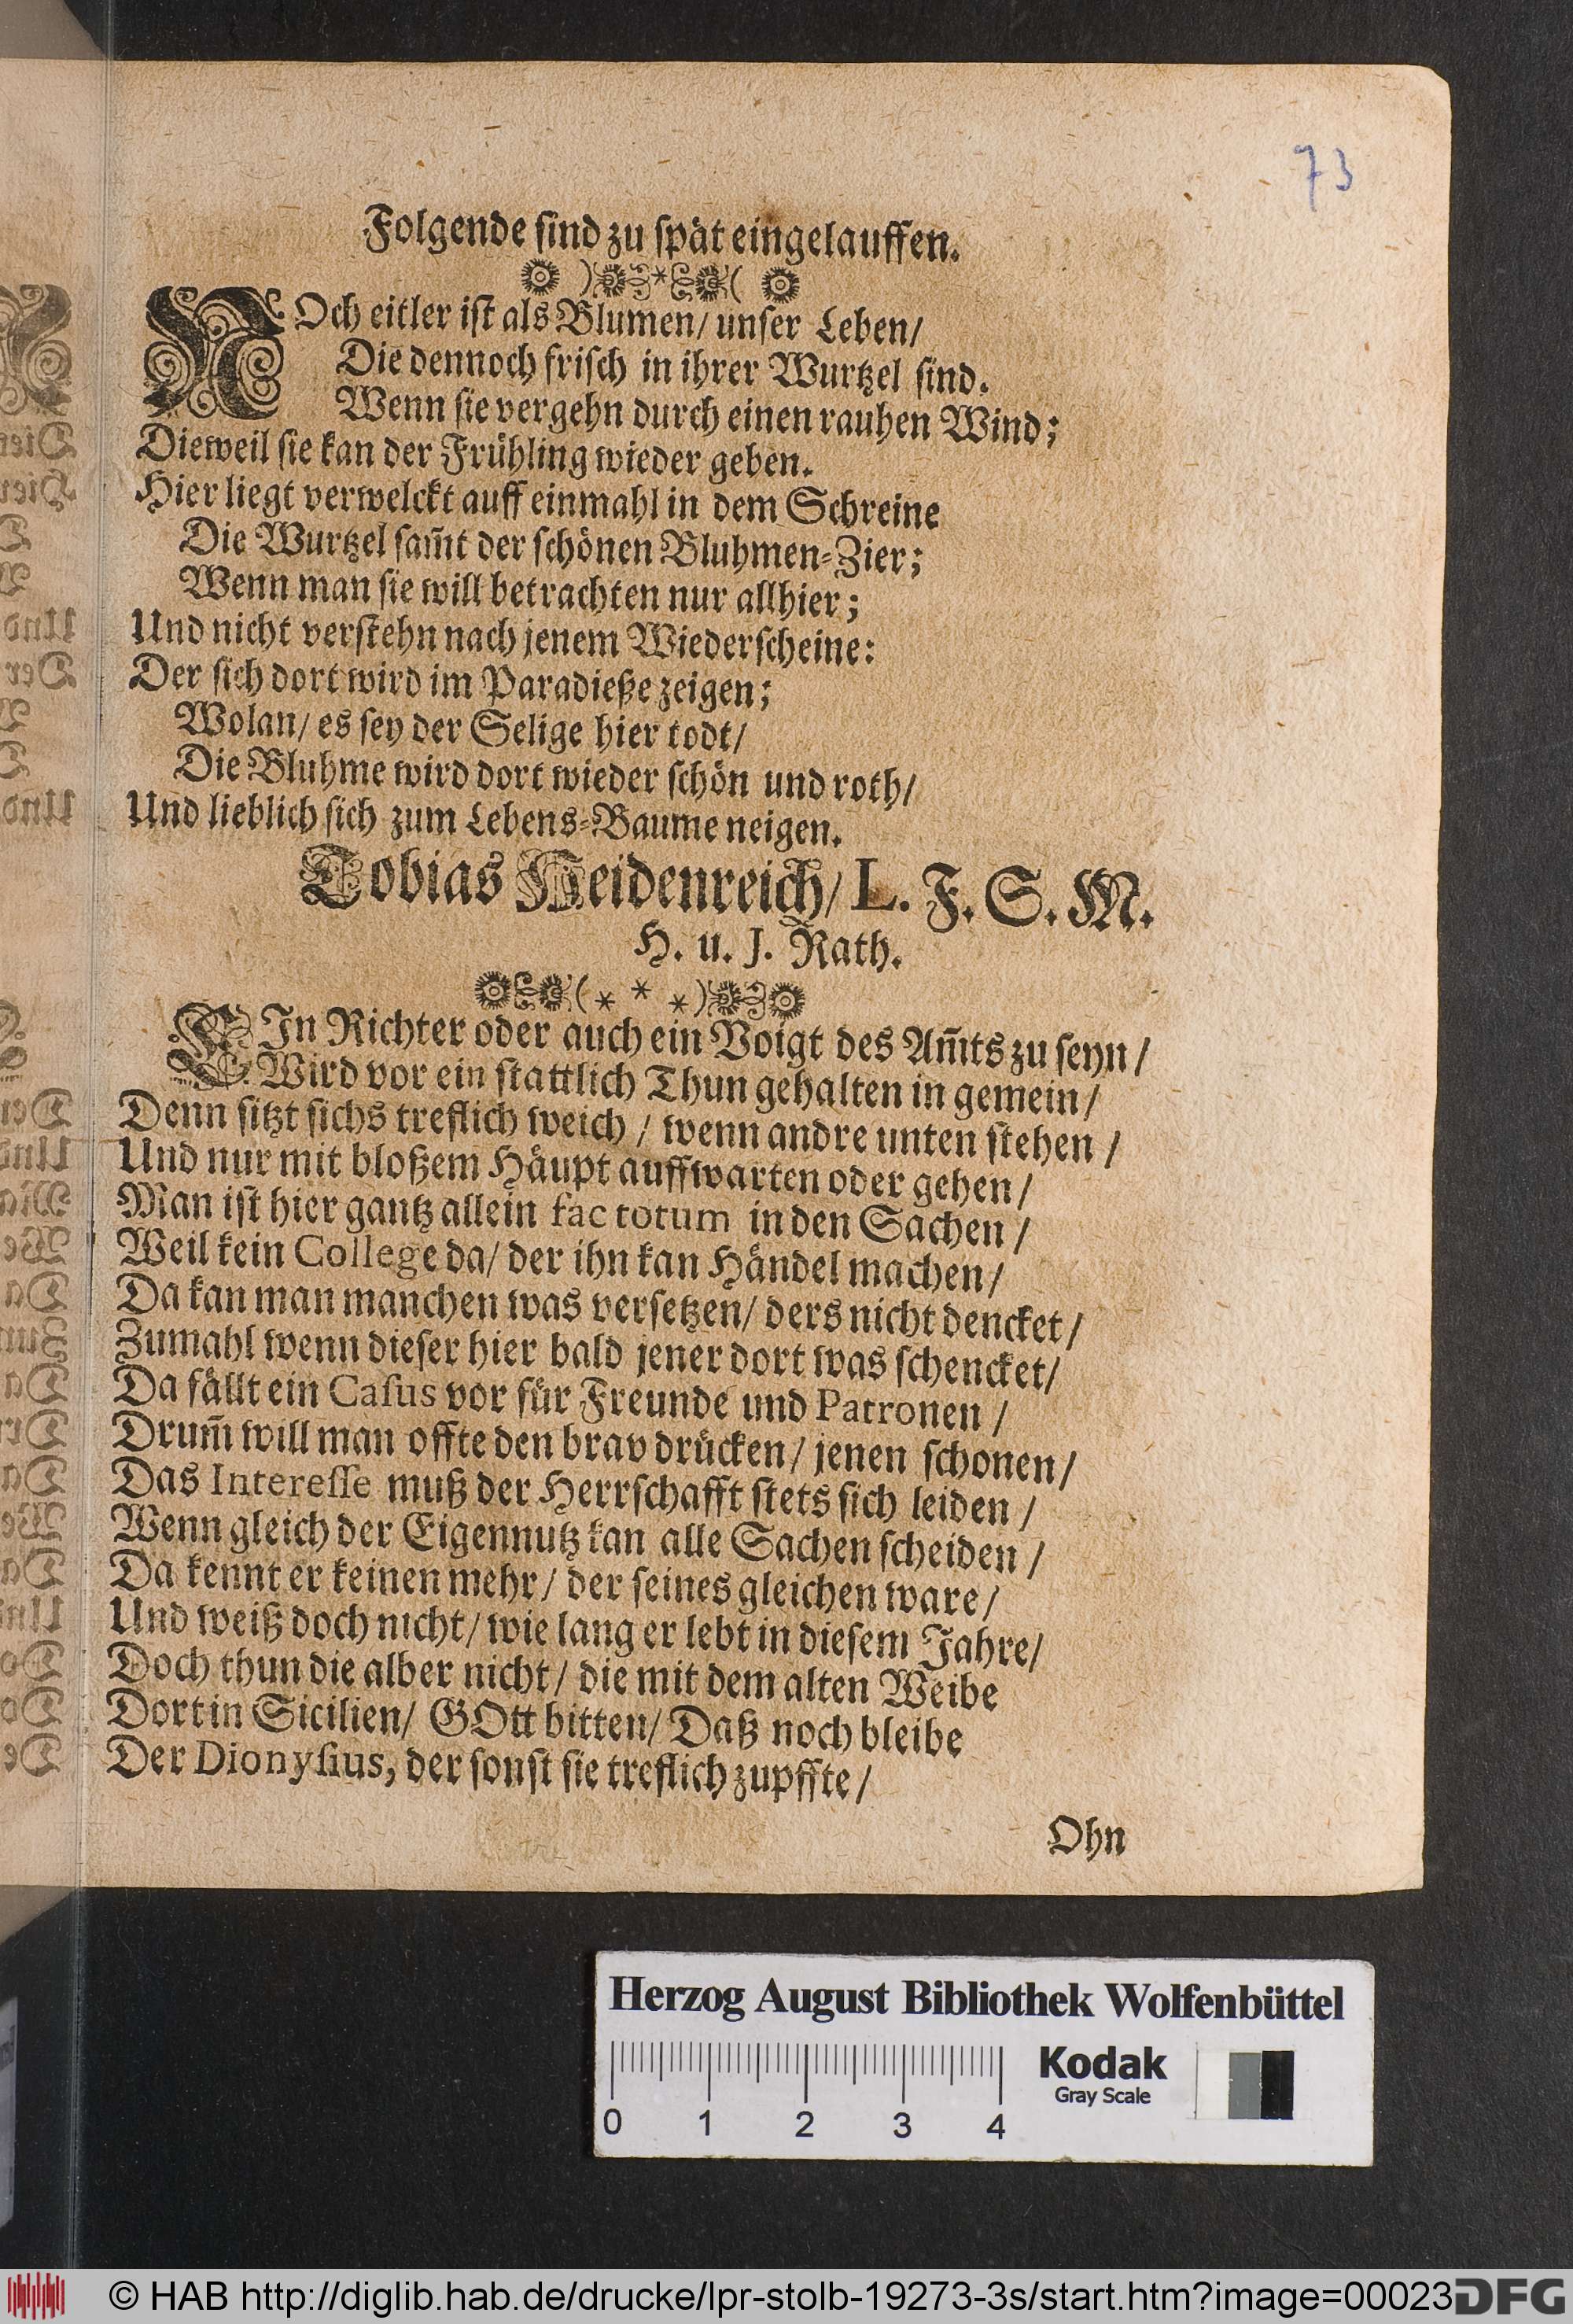 73
Folgende ſind zu ſpät eingelauffen.
NOch eitler iſt als Blumen/ unſer Leben/
Die dennoch friſch in ihrer Wurtzel ſind.
Wenn ſie vergehn durch einen rauhen Wind;
Dieweil ſie kan der Frühling wieder geben.
Hier liegt verwelckt auff einmahl in dem Schreine
Die Wurtzel sam̃t der ſchönen Bluhmen-Zier;
Wenn man ſie will betrachten nur allhier;
Und nicht verſtehn nach jenem Wiederſcheine:
Der ſich dort wird im Paradieße zeigen;
Wolan/ es ſey der Selige hier todt/
Die Bluhme wird dort wieder ſchön und roth/
Und lieblich ſich zum Lebens-Baume neigen.
Tobias Heidenreich/ L. F. S. M.
H. u. J. Rath.
EIn Richter oder auch ein Voigt des Am̃ts zu ſeyn/
Wird vor ein ſtattlich Thun gehalten in gemein/
Denn ſitzt ſichs treflich weich/ wenn andre unten ſtehen/
Und nur mit bloßem Häupt auffwarten oder gehen/
Man iſt hier gantz allein fac totum in den Sachen/
Weil kein College da/ der ihn kan Händel machen/
Da kan man manchen was verſetzen/ ders nicht dencket/
Zumahl wenn dieſer hier bald jener dort was ſchencket/
Da fällt ein Caſus vor für Freunde und Patronen/
Drum̃ will man offte den brav drücken/ jenen ſchonen/
Das Intereſſe muß der Herrſchafft ſtets ſich leiden/
Wenn gleich der Eigennutz kan alle Sachen ſcheiden/
Da kennt er keinen mehr/ der ſeines gleichen ware/
Und weiß doch nicht/ wie lang er lebt in dieſem Jahre/
Doch thun die alber nicht/ die mit dem alten Weibe
Dort in Sicilien/ GOtt bitten/ Daß noch bleibe
Der Dionyſius, der ſonſt ſie treflich zupffte/
Ohn
Herzog August Bibliothek Wolfenbüttel
Kodak
Gray Scale
0 1 2 3 4
© HAB http://diglib.hab.de/drucke/lpr-stolb-19273-3s/start.htm?image=00023
DFG